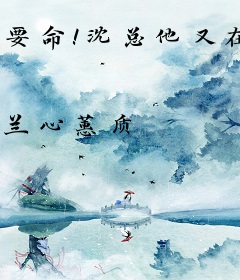 要命!沈总他又在
兰心蕙质